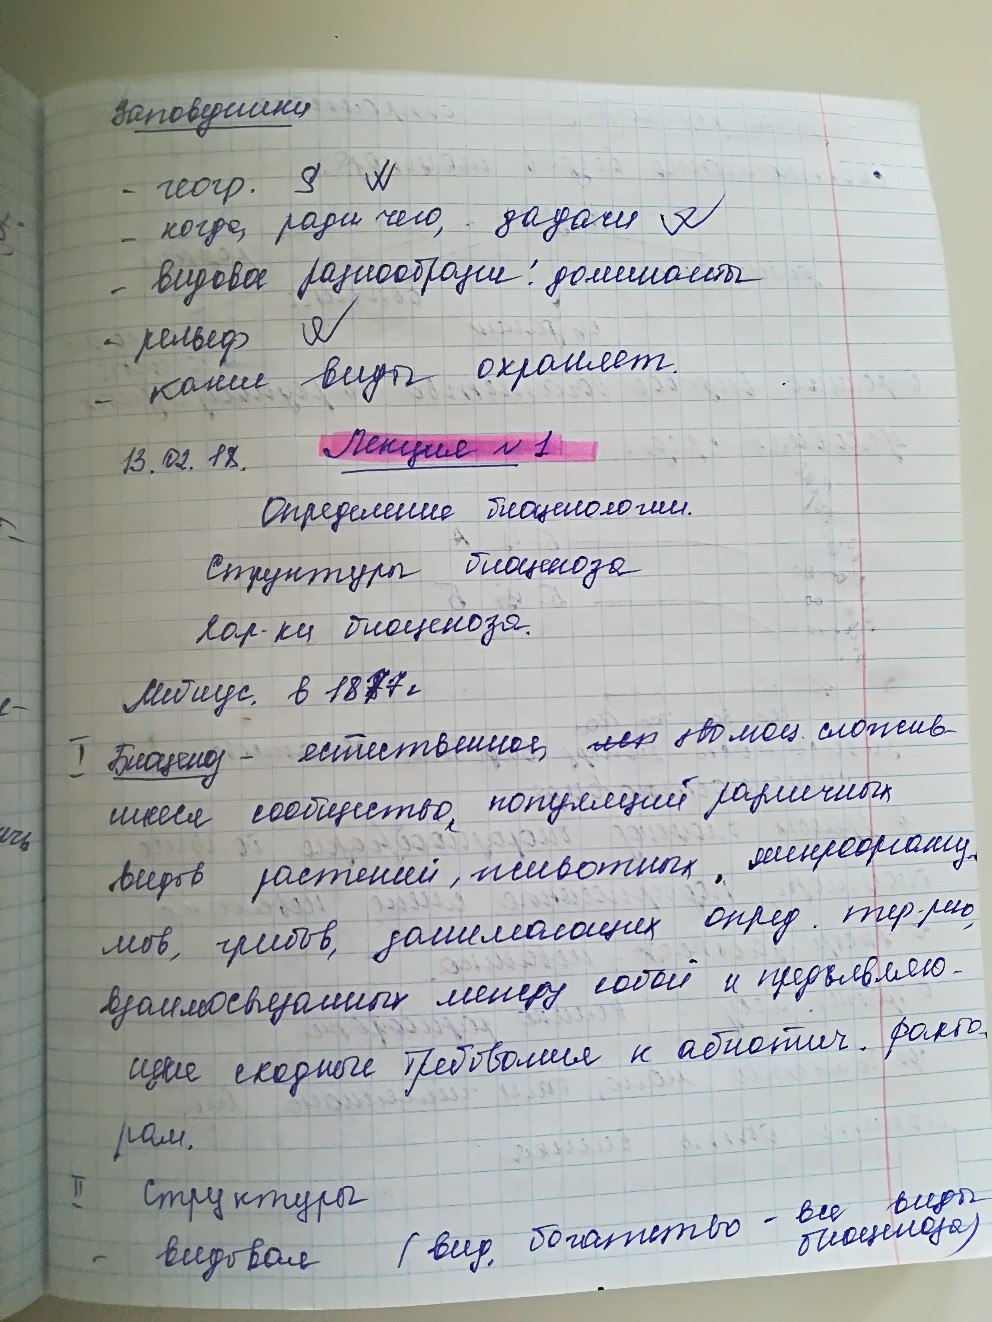 Заповедники
- геогр. S
- когда, ради чего, задачи
- видовое разнообразие: доминанты
- рельеф
- какие виды охраняет.
13.02.18. Лекция №1
Определение биоценологии.
Структуры биоценоза
Хар-ки биоценоза.
Мебиус. в 1877г
I Биоценоз - естественное, сложив-
шееся сообщество, популяций различных
видов растений, животных, микроорганиз
мов, грибов, занимающих опред. тер-рию,
взаимосвязанных между собой и предъявляю-
щие сходные требования к абиотич. факто
рам.
II Структуры
- видовая (вид. богатство - все виды
биоценоза)